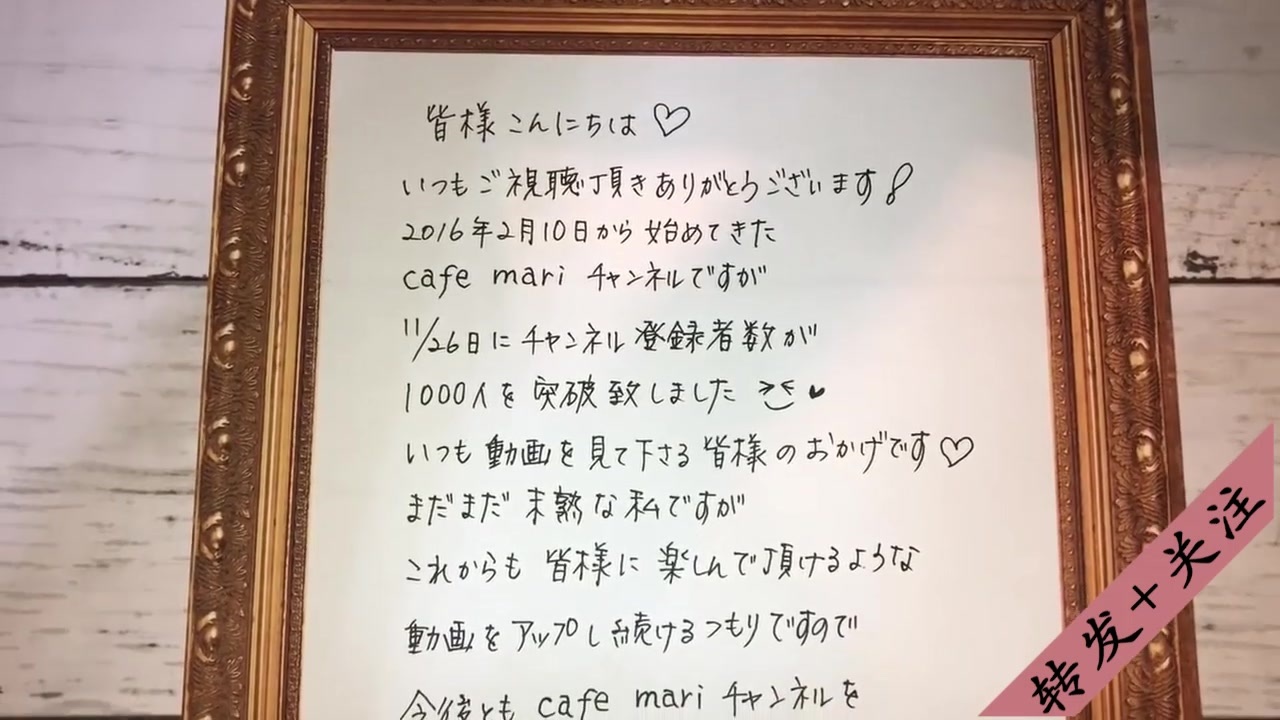 皆様こんにちは♡
いつもご視聴頂きありがとうございます!
2016年2月10日から始めてきた
cafe mari チャンネルですが
11/26日にチャンネル登録者数が
1000人を突破致しました
いつも動画を見て下さる皆様のおかげです♡
まだまだ未熟な私ですが
これからも皆様に楽しんで頂けるような
動画をアップし続けるつもりですので
今後とも cafe mari チャンネルを
转发+关注